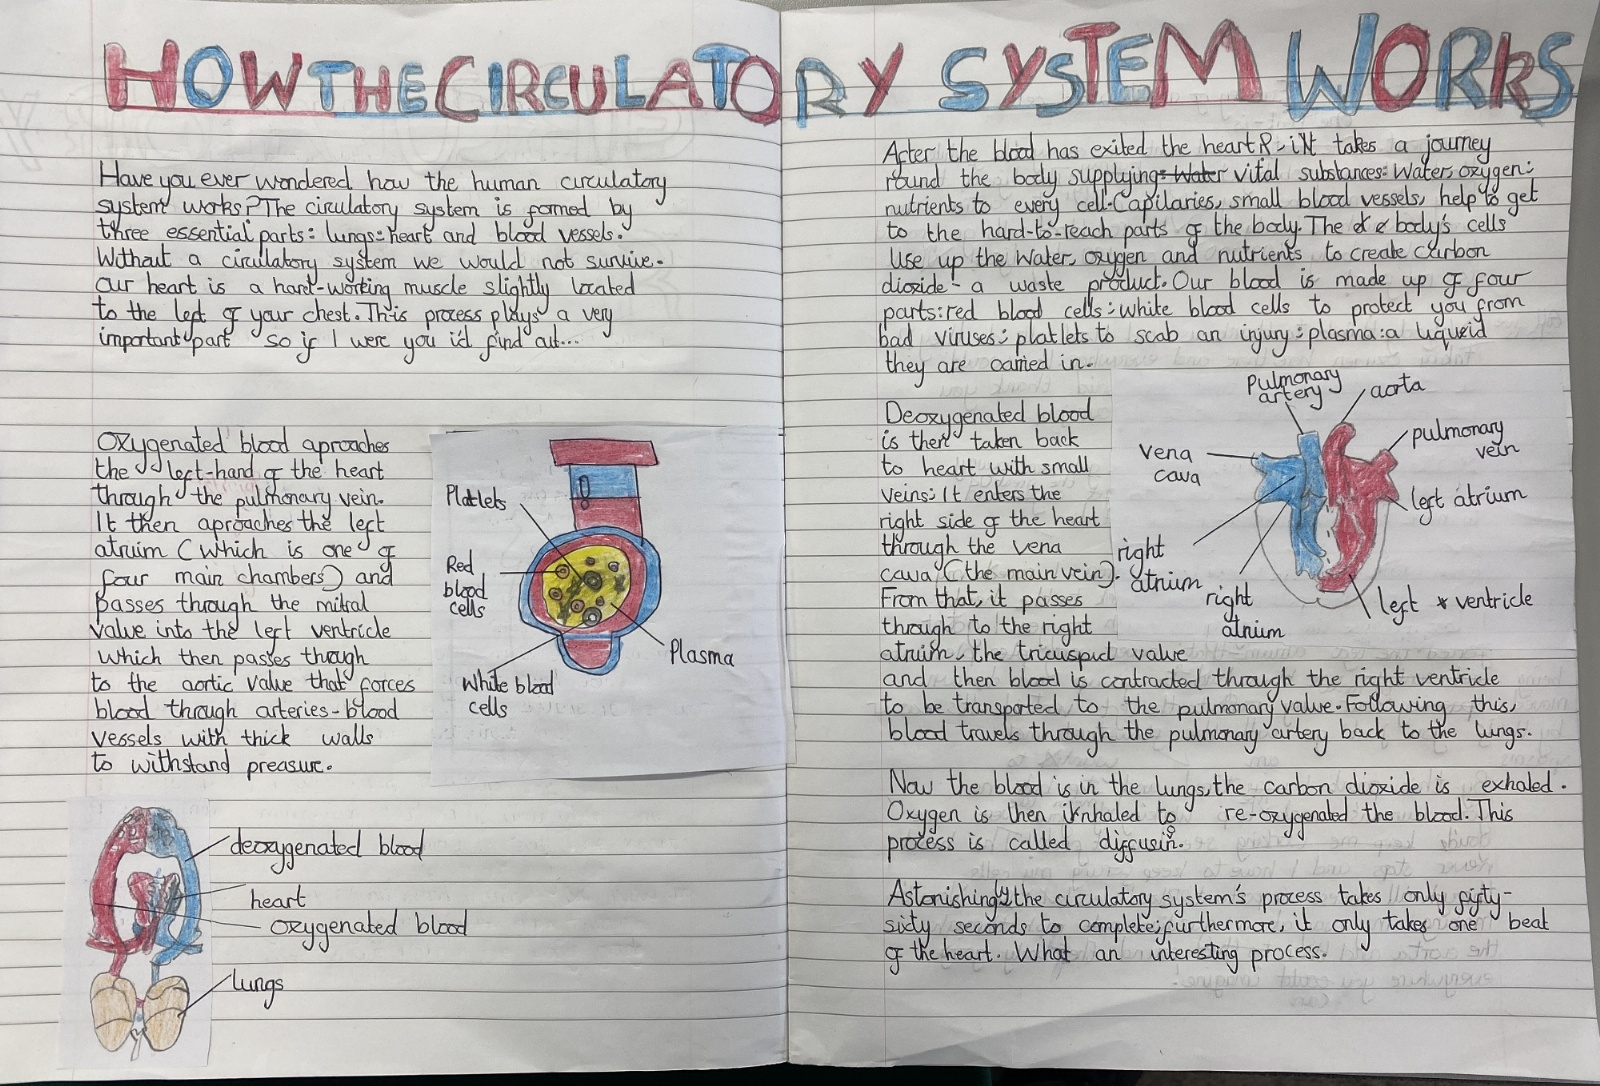 HOW THE CIRCULATORY SYSTEM WORKS
Have you ever wondered how the human circulatory
system works? The circulatory system is formed by
three essential parts: lungs: heart and blood vessels.
Without a circulatory system we would not survive.
Our heart is a hard-working muscle slightly located
to the left of your chest. This process plays a very
important part so if I were you i'd find out...
Oxygenated blood aproaches
the left-hand of the heart
through the pulmonary vein.
It then aproaches the left
atruim (which is one of
four main chambers) and
passes through the mitral
valve into the left ventricle
which then passes though
to the aortic valve that forces
blood through arteries-blood
vessels with thick walls
to withstand preasure.
Platelets
Red
blood
cells
White blood
cells
Plasma
deoxygenated blood
heart
oxygenated blood
lungs
After the blood has exited the heart it takes a journey
round the body supplying: Water vital substances: Water, oxygen:
nutrients to every cell. Capilaries, small blood vessels, help to get
to the hard-to-reach parts of the body. The body's cells
use up the water, oxygen and nutrients to create carbon
dioxide- a waste product. Our blood is made up of four
parts: red blood cells: white blood cells to protect you from
bad viruses: platlets to scab an injury: plasma: a liqueid
they are carried in.
Deoxygenated blood
is then taken back
to heart with small
veins: It enters the
right side of the heart
through the vena
cava (the main vein).
From that, it passes
through to the right
atruim, the tricuspid valve
and then blood is contracted through the right ventricle
to be transported to the pulmonary valve. Following this,
blood travels through the pulmonary artery back to the lungs.
Pulmonary
artery
aorta
vena
cava
pulmonary
vein
left atrium
right
atrium
right
atnium
left ventricle
Now the blood is in the lungs, the carbon dioxide is exhaled.
Oxygen is then inhaled to re-oxygenated the blood. This
process is called diffusion.
Astonishingly the circulatory system's process takes only fifty-
sixty seconds to complete; furthermore, it only takes one beat
of the heart. What an interesting process.